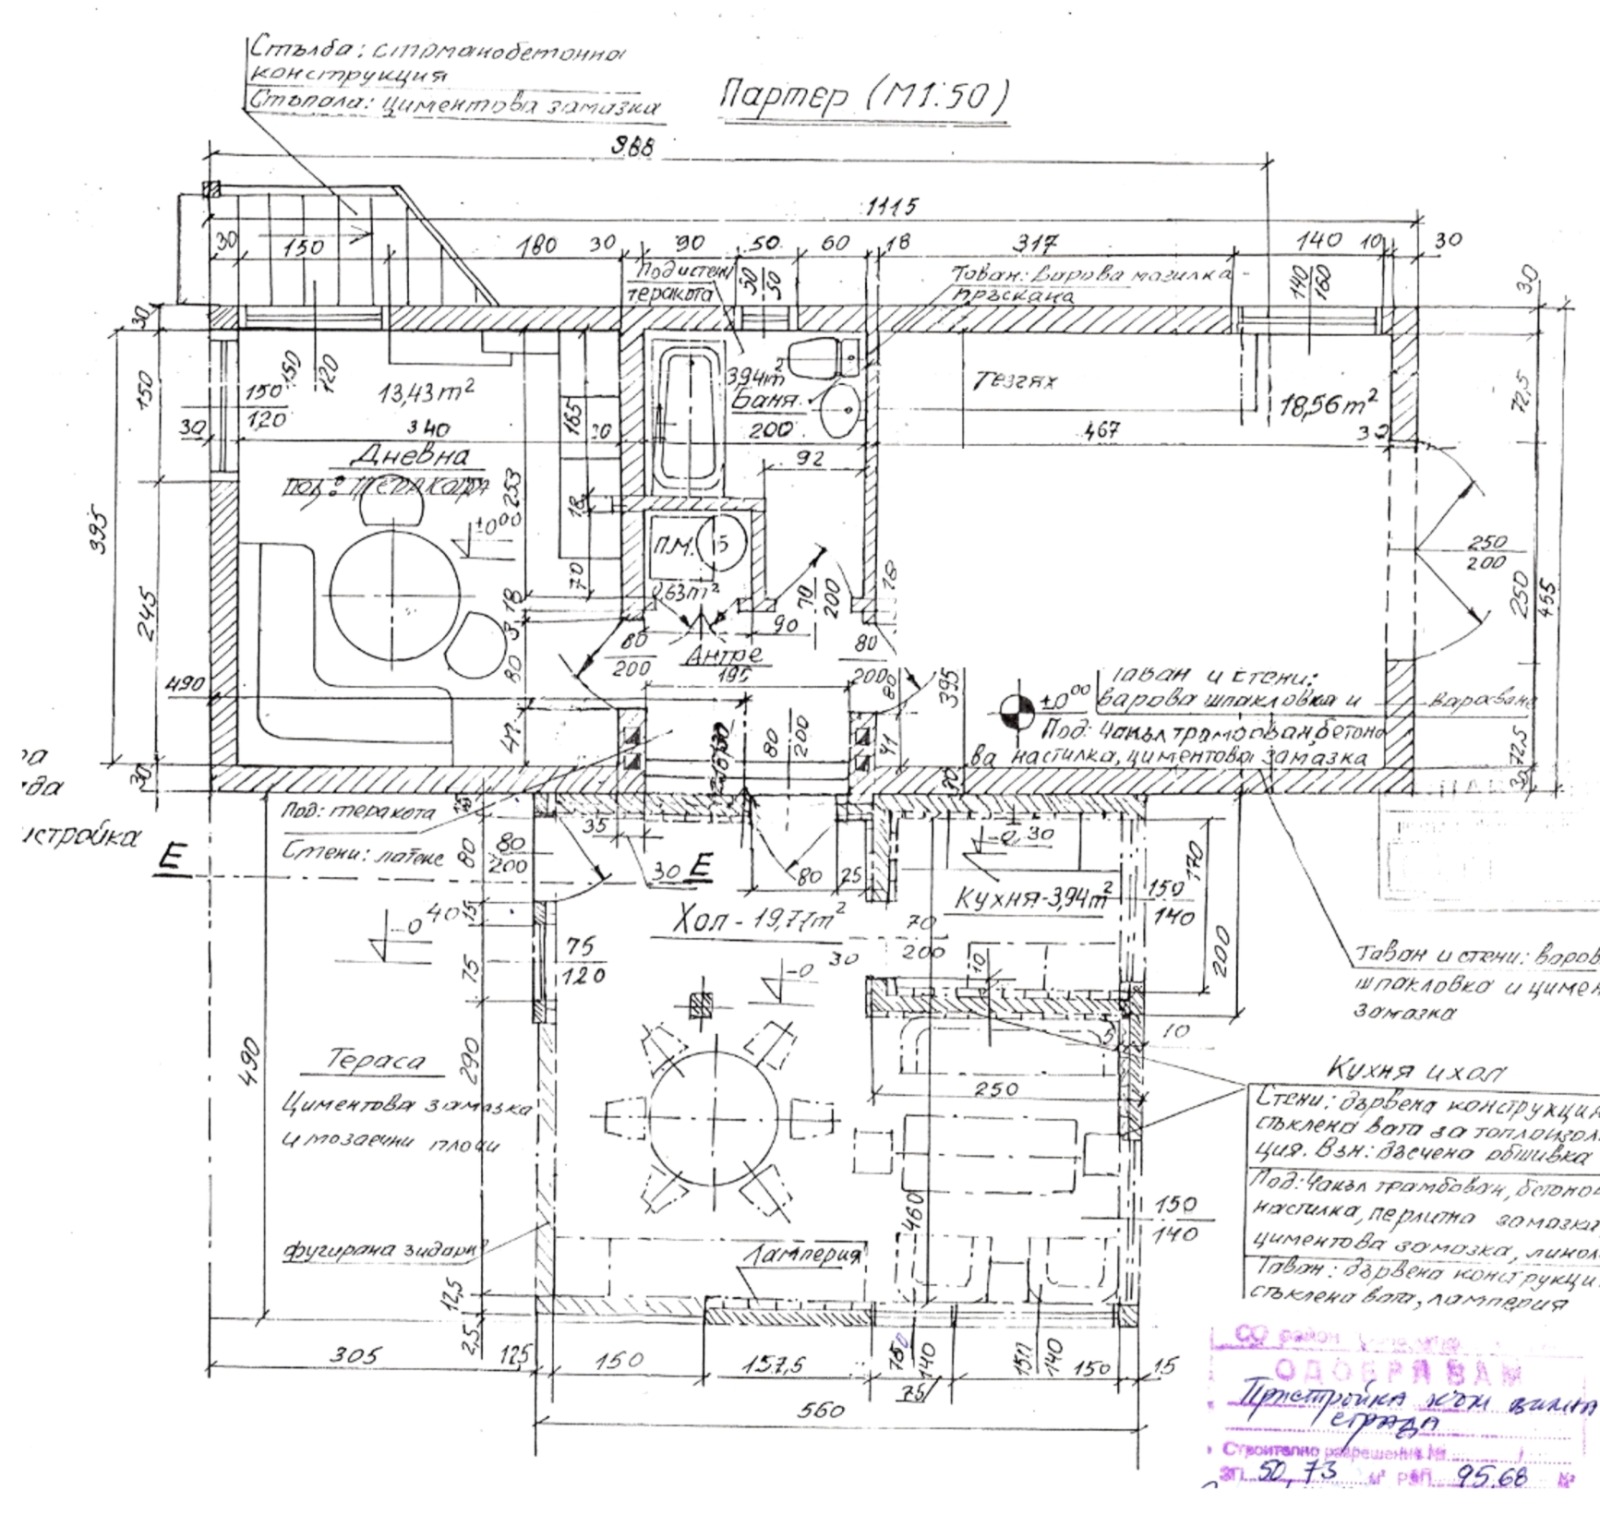 Стълба: стоманобетонна
конструкция
Стъпала: циментова замазка
Партер (М1:50)
988
1115
30 150 180 30 90 50 60 18 317 140 10 30
Под и стени
теракота
50
50
Таван: варова мазилка
пръскана
140
160
30
30
150
120
150
120
13,43 m²
3,94 m²
Баня
Тезгях
18,56 m²
72,5
150
30
340
165
20
200
467
32
92
Дневна
под: теракота
253
±0⁰⁰
395
18
П.М.
5
0,63 m²
70
70
200
18
250
200
250
455
245
18
3
80
80
200
90
Антре
195
80
200
80
395
490
±0⁰⁰
Таван и стени:
варова шпакловка и
вароване
Под: Чакъл трамбован, бетоно
ва настилка, циментова замазка
47
80
200
41
72,5
30
30
Под: теракота
Стени: латекс
стройка
80
80
200
35
30
Е
Е
80
25
-0,30
170
150
140
Кухня-3,94 m²
Хол - 19,77 m²
-0 40
15
75
75
120
70
200
30
-0
10
200
Таван и стени: варов
шпакловка и цимен
замазка
490
Тераса
Циментова замазка
и мозаечни плочи
290
5
10
250
Кухня и хол
Стени: дървена конструкция
стъклена вата за топлоизол
ция. Взн: дъсчена обшивка
Под: Чакъл трамбован, бетоно
настилка, перлитна замазка,
циментова замазка, линол
Таван: дървена конструкци
стъклена вата, ламперия
150
140
460
фугирана зидария
Ламперия
12,5
2,5
305 125 150 157,5
75
140
150
140
150 15
560
СО район
ОДОБРЯВАМ
Пристройка към вилна
сграда
Строително разрешение №
ЗП 50,73 м² РЗП 95.68 м²